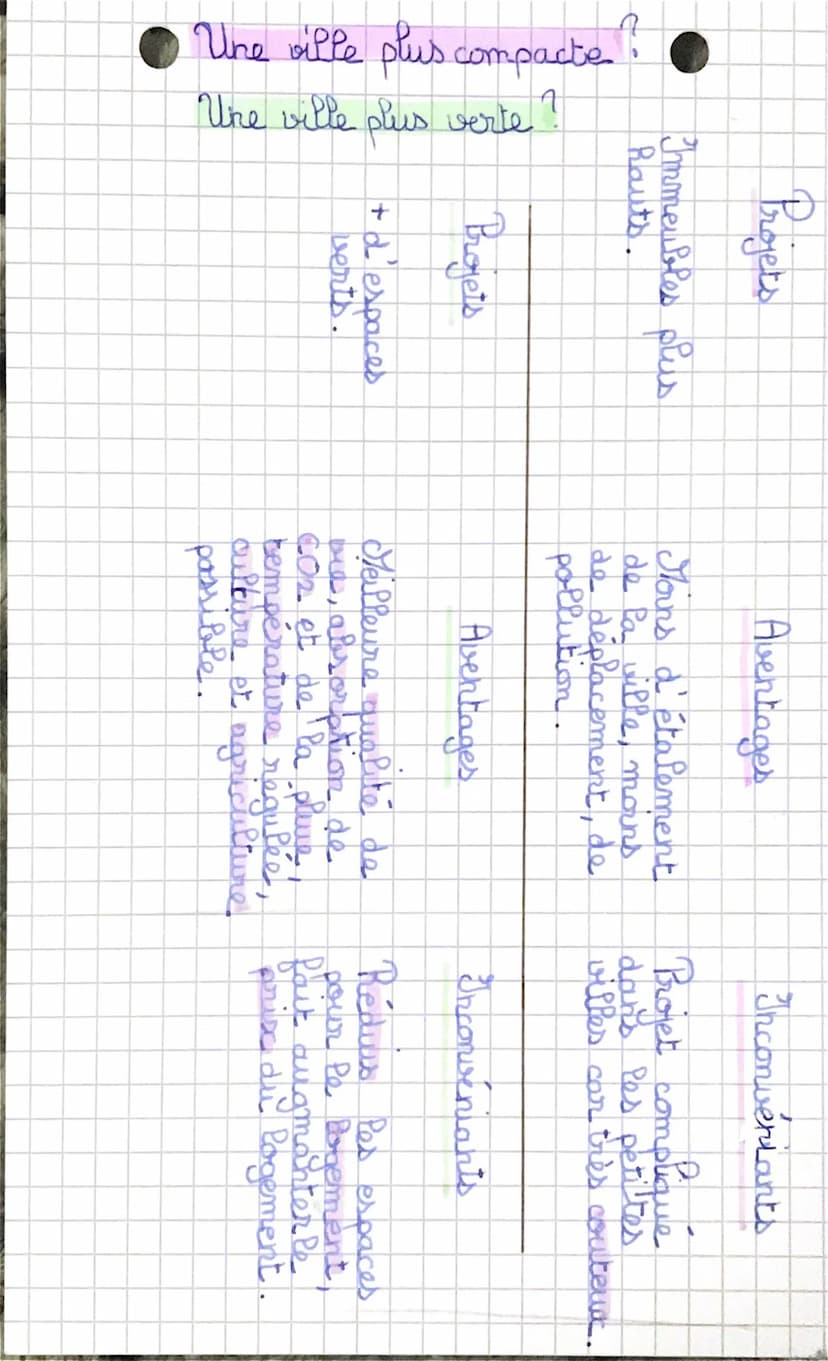 Une ville plus compacte?
Une ville plus verte?
Projets
Immeubles plus
hauts.
Aventages
Moins d'étalement
de la ville, moins
de déplacement, de
pollution.
Inconvéniants
Projet compliqué
dans les petites
villes car très couteux.
Projets
+ d'espaces
verts.
Aventages
Meilleure qualité de
vie, absorption de
CO2 et de la pluie,
température régulée,
culture et agriculture
possible.
Inconvéniants
Réduis les espaces
pour le logement,
fait augmenter le
prix du logement.